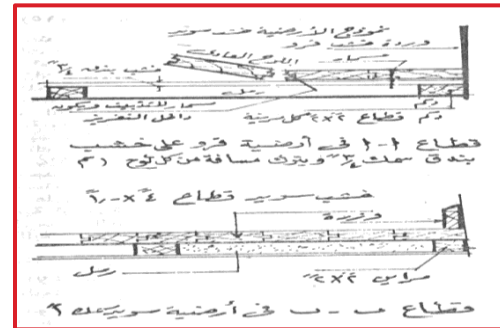 نموذج الأرضية خشب سويد
وزرة خشب قرو
مسمار
اللوح العادى
خشب بندق ٣/٤"
رمل
دكم
مسمار للتثبيت ويكون
داخل التعزيز
دكم قطاع ٢×٢ كل مرينة
قطاع ا-ا فى أرضية قرو على خشب
بندق سمك ٣/٤" ويترك مسافة من كل لوح ١م
خشب سويد قطاع ٤"×١"
وزرة
رمل
مراين ٢×٢"
قطاع ب-ب فى أرضية سويد سمك ١"